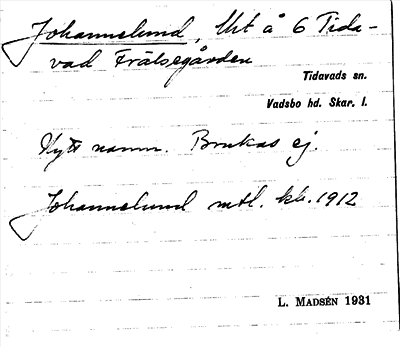 Johannelund, Uht å 6 Tida-
vad Frälsegården
Tidavads sn.
Vadsbo hd. Skar. l.
Nytt namn. Brukas ej.
Johannelund mtl. kb. 1912
L. MADSÉN 1931